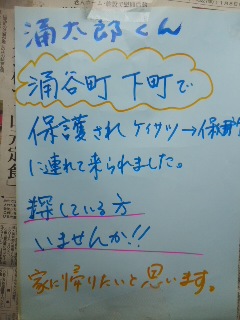 涌太郎くん
涌谷町 下町で
保護され ケイサツ→保
に連れて来られました。
探している方
いませんか!!
家に帰りたいと思います。